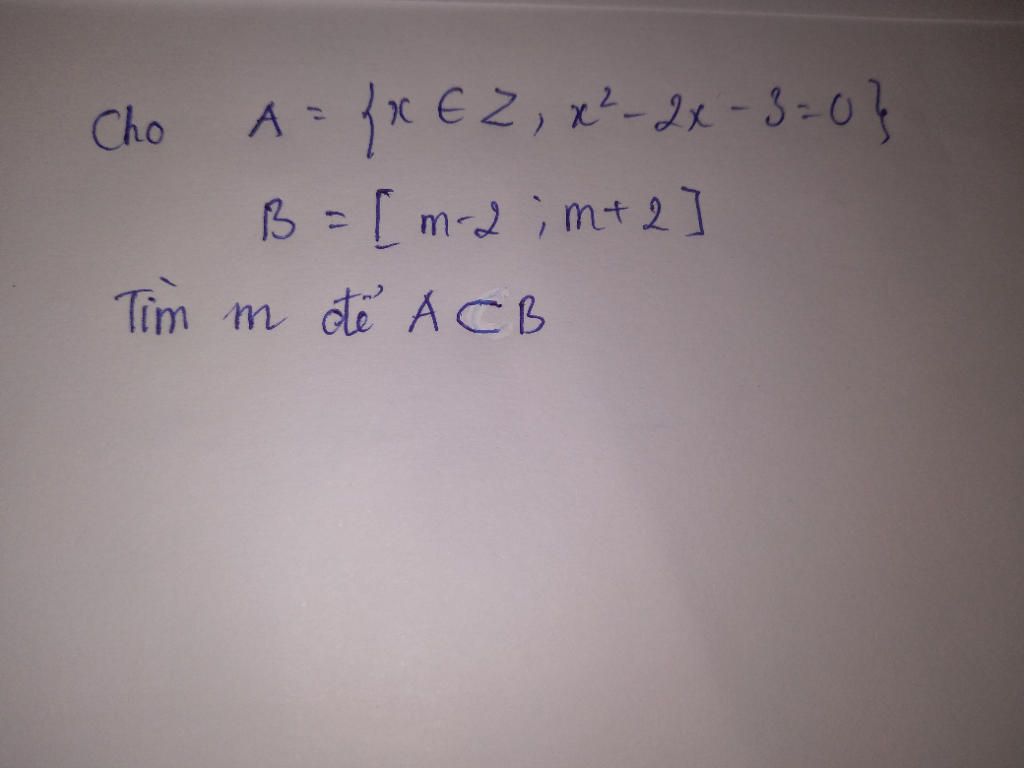 Cho A = {x ∈ Z, x² - 2x - 3 = 0}
B = [m-2 ; m+2]
Tìm m để A ⊂ B